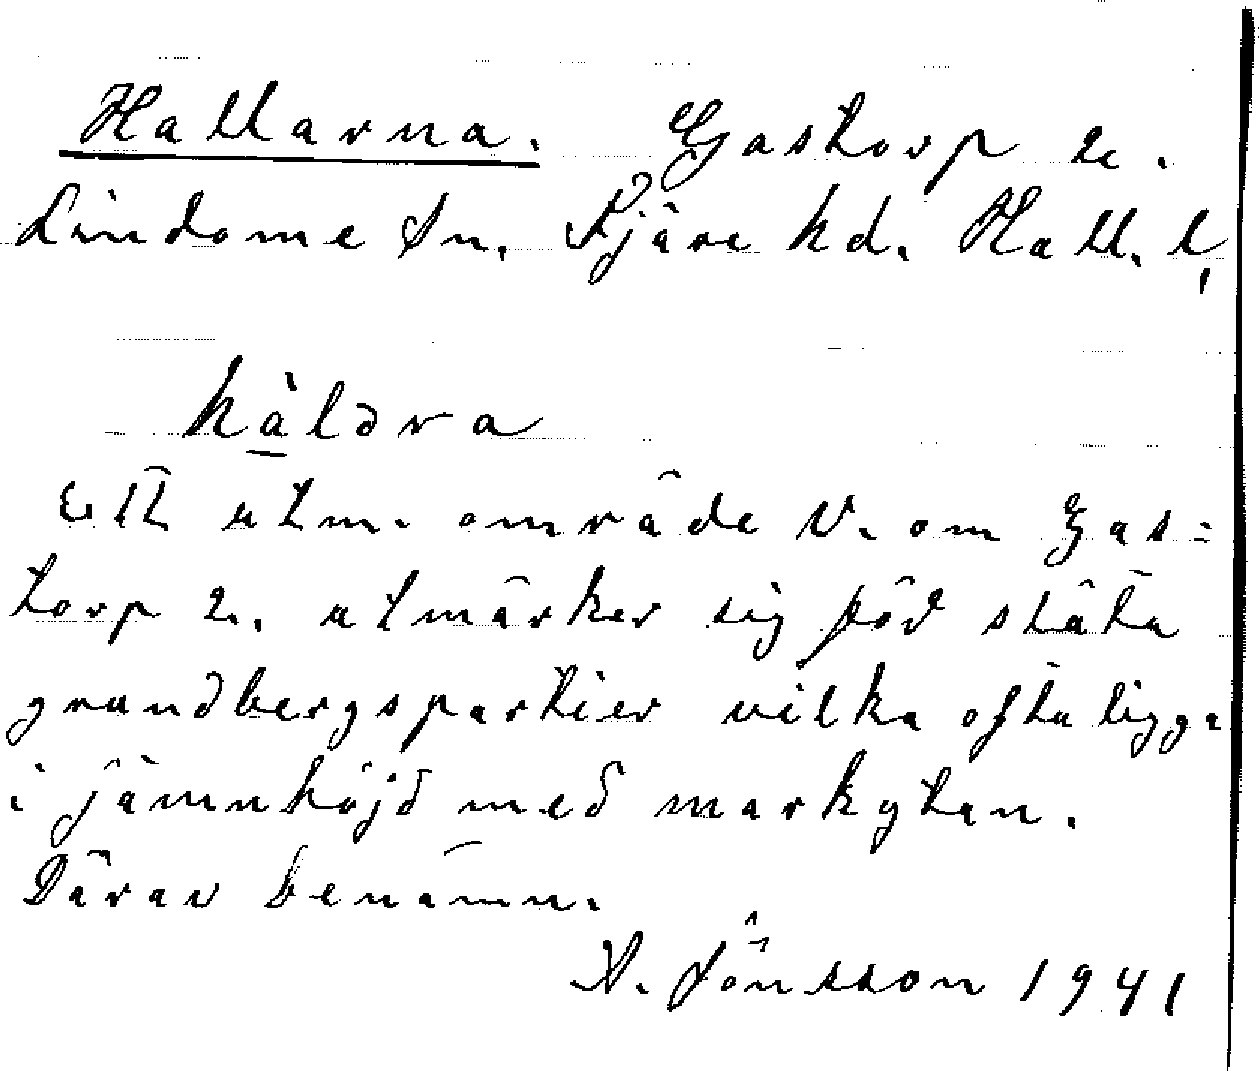 Hallarna. Gastorp 2.
Lindome sn. Fjäre hd. Hall. l.
hàldra
Ett utm. område V. om Gas=
torp 2. utmärker sig för släta
grundbergspartier vilka ofta ligga
i jämnhöjd med markytan.
Därav benämn.
A. Jönsson 1941